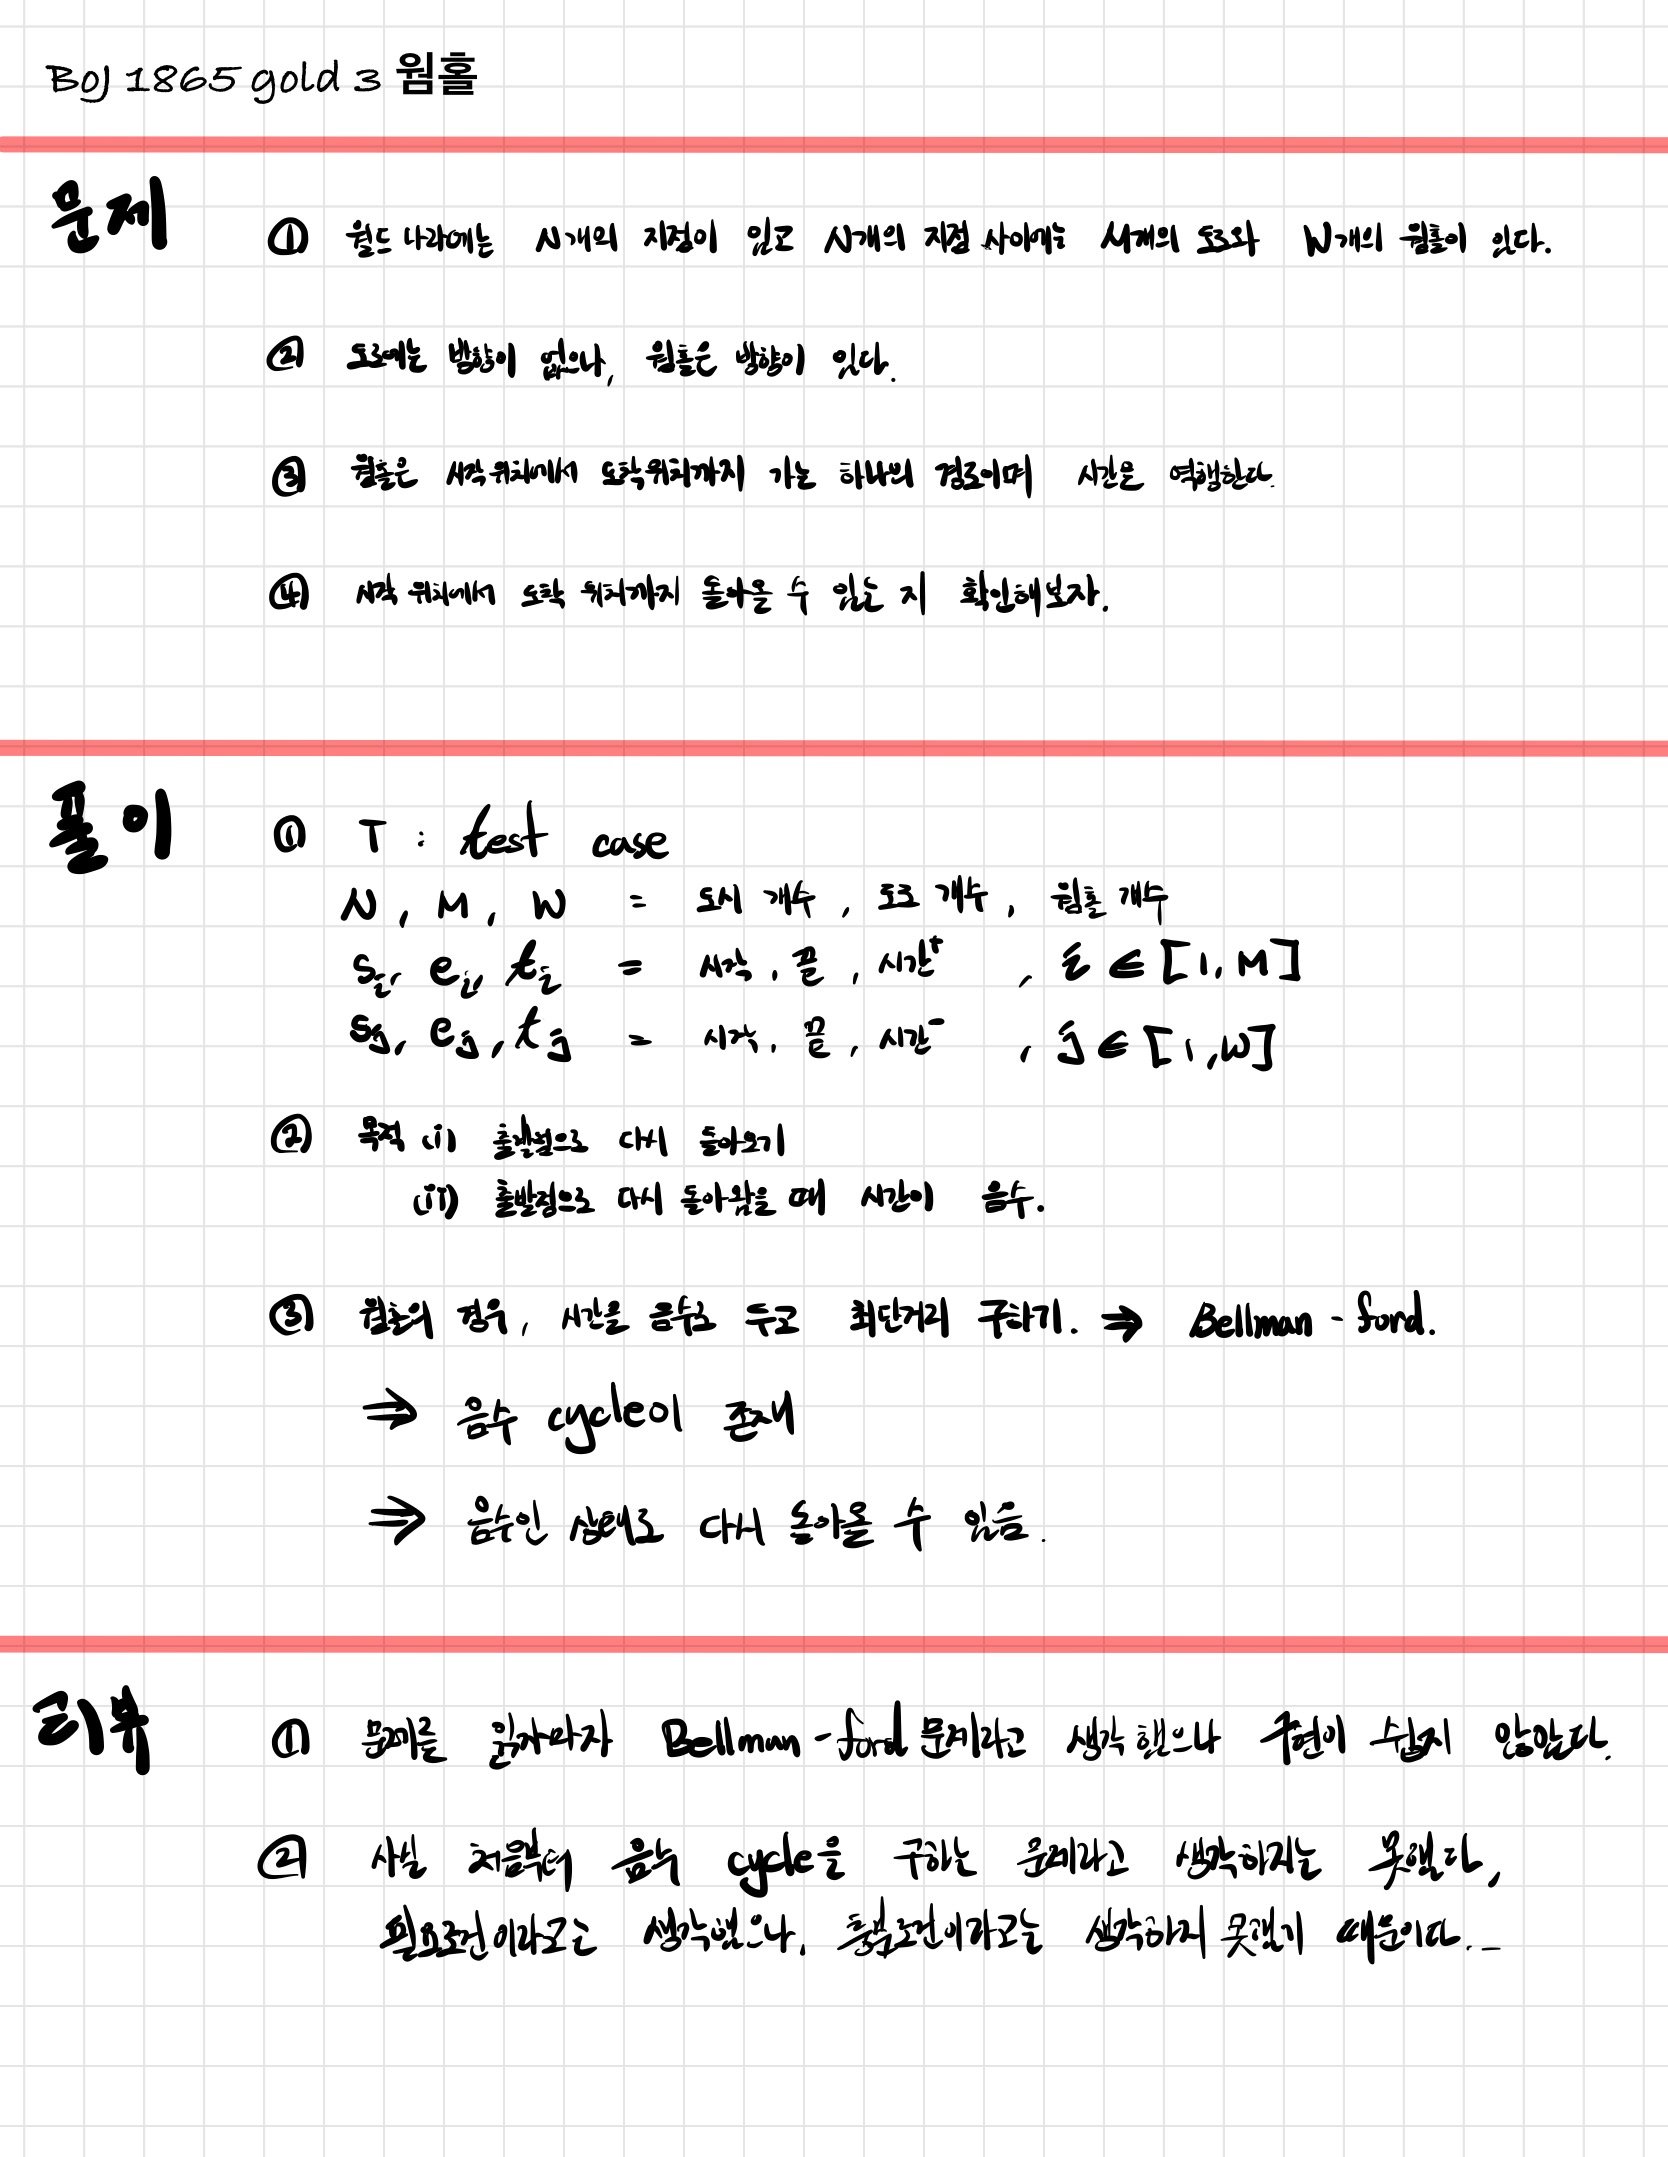 BOJ 1865 gold 3 웜홀
문제
① 월드 나라에는 N개의 지점이 있고 N개의 지점 사이에는 M개의 도로와 W개의 웜홀이 있다.
② 도로에는 방향이 없으나, 웜홀은 방향이 있다.
③ 웜홀은 시작위치에서 도착위치까지 가는 하나의 경로이며 시간은 역행한다.
④ 시작 위치에서 도착 위치까지 돌아올 수 있는 지 확인해보자.
풀이
① T : test case
N, M, W = 도시 개수, 도로 개수, 웜홀 개수
sᵢ, eᵢ, tᵢ = 시작, 끝, 시간⁺ , i ∈ [1, M]
sⱼ, eⱼ, tⱼ = 시작, 끝, 시간⁻ , j ∈ [1, W]
② 목적 (i) 출발점으로 다시 돌아오기
(ii) 출발점으로 다시 돌아왔을 때 시간이 음수.
③ 웜홀의 경우, 시간을 음수로 두고 최단거리 구하기. ⇒ Bellman - ford.
⇒ 음수 cycle이 존재
⇒ 음수인 상태로 다시 돌아올 수 있음.
리뷰
① 문제를 읽자마자 Bellman - ford 문제라고 생각했으나 구현이 쉽지 않았다.
② 사실 처음부터 음수 cycle을 구하는 문제라고 생각하지는 못했다,
필요조건이라고는 생각했으나, 충분조건이라고는 생각하지 못했기 때문이다..